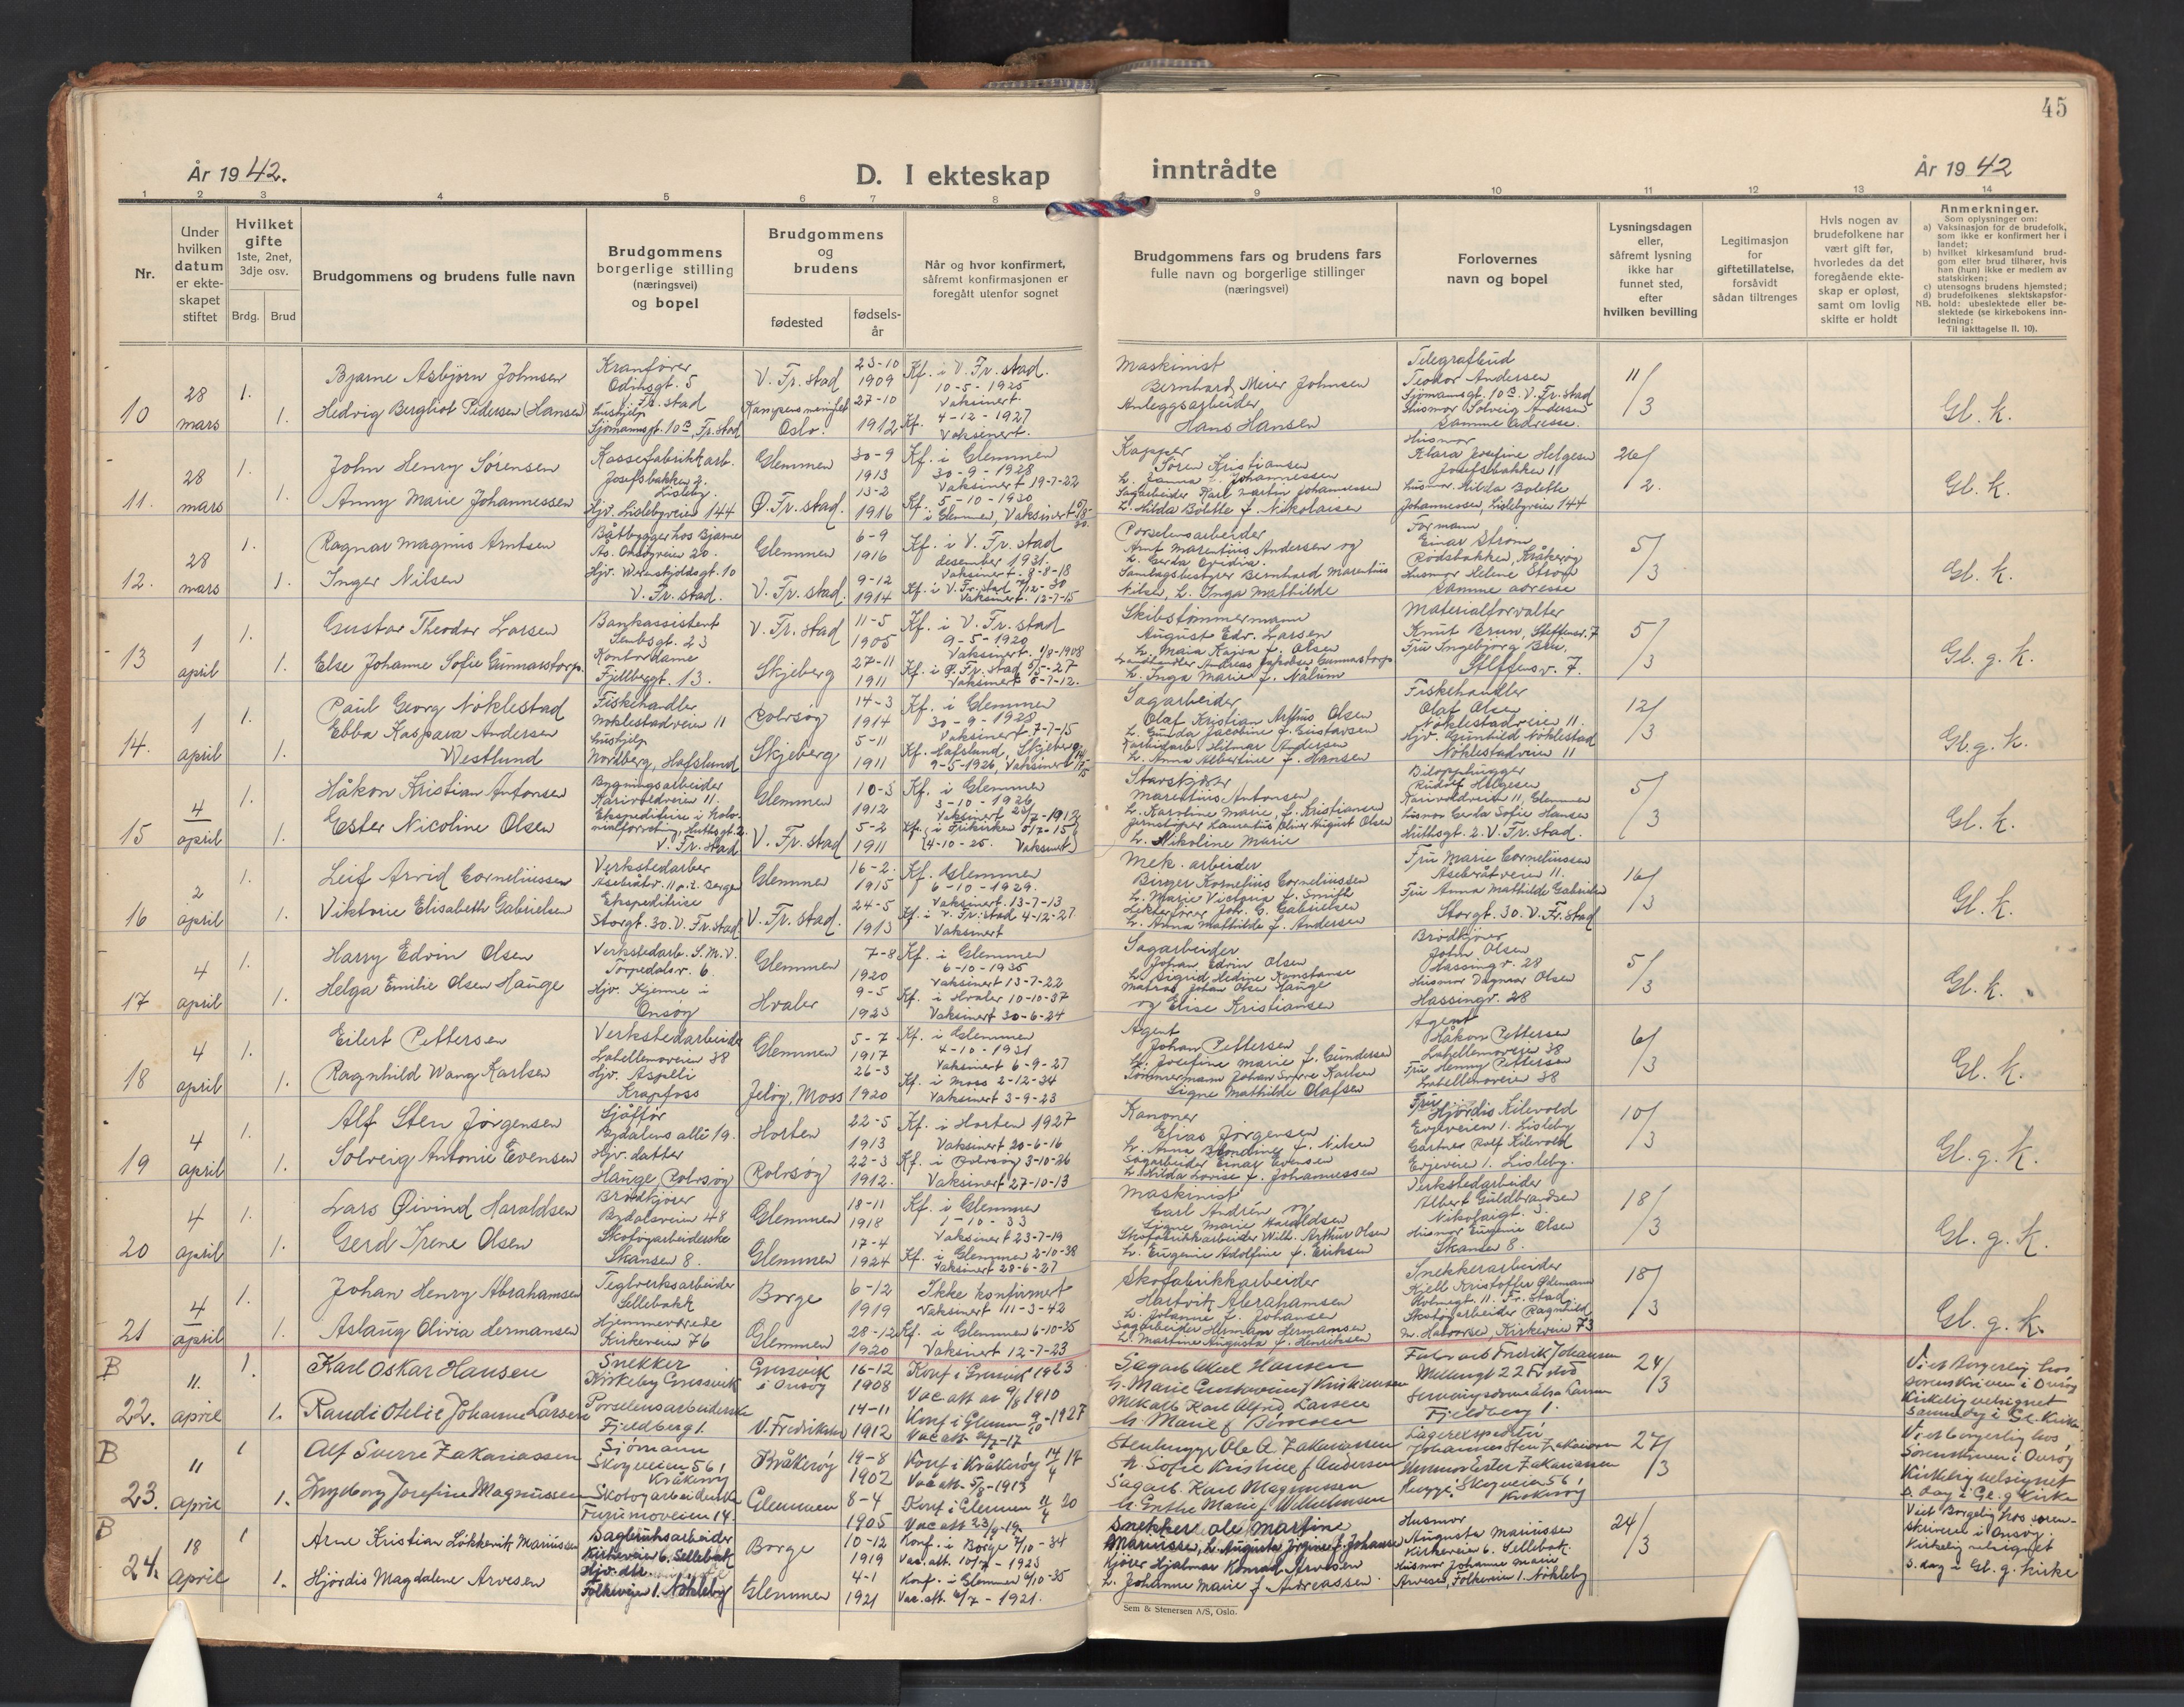 45
År 1942.
D. I ekteskap inntrådte
År 1942
1 2 3 4 5 6 7 8 9 10 11 12 13 14
Nr.
Under hvilken datum er ekteskapet stiftet
Hvilket gifte
1ste, 2net, 3dje osv.
Brdg. Brud
Brudgommens og brudens fulle navn
Brudgommens borgerlige stilling (næringsvei) og bopel
Brudgommens og brudens
fødested
fødselsår
Når og hvor konfirmert, såfremt konfirmasjonen er foregått utenfor sognet
Brudgommens fars og brudens fars fulle navn og borgerlige stillinger (næringsvei)
Forlovernes navn og bopel
Lysningsdagen eller, såfremt lysning ikke har funnet sted, efter hvilken bevilling
Legitimasjon for giftetillatelse, forsåvidt sådan tiltrenges
Hvis nogen av brudefolkene har vært gift før, hvorledes da det foregående ekteskap er opløst, samt om lovlig skifte er holdt
Anmerkninger.
Som oplysninger om:
a) Vaksinasjon for de brudefolk, som ikke er konfirmert her i landet;
b) hvilket kirkesamfund brudgom eller brud tilhører, hvis han (hun) ikke er medlem av statskirken;
c) utensogns brudens hjemsted;
d) brudefolkenes slektskapsforhold: ubeslektede eller beslektede (se kirkebokens innledning:
NB. Til iakttagelse II. 10).
10 28 mars 1. 1.
Bjarne Asbjørn Johnsen
Hedvig Bergliot Pedersen (Hansen)
Kranfører
Odinsgt. 5
Fr. stad
Hushjelp
Sjømannsgt. 10 B, Fr. stad
V. Fr. stad
Kampens menighet
Oslo.
23-10 1909
27-10 1912
Kf. i V. Fr. stad.
10-5-1925
Vaksinert.
Kf. 4-12-1927
Vaksinert.
Maskinist
Bernhard Meier Johnsen
Anleggsarbeider
Hans Hansen
Telegrafbud
Teodor Andersen
Sjømannsgt. 10 B. V. Fr. stad
Husmor Solveig Andersen
Samme adresse.
11/3
Gl. k.
11. 28 mars 1. 1.
John Henry Sørensen
Anny Marie Johannessen
Kassefabrikkarb.
Josefsbakken 2.
Lisleby.
Hjv. Lislebyveien 144
Glemmen
Ø. Fr. stad.
30-9 1913
13-2 1916
Kf. i Glemmen
30-9-1928
Vaksinert 19-7-22
Kf. 5-10-1930
i Glemmen, Vaksinert
Kapper
Søren Kristiansen
Sagarbeider Karl Martin Johannessen
h. Hilda Bolette f. Nikolaisen
Husmor
Klara Josefine Helgesen
Josefsbakken 1
Husmor Hilda Bolette
Johannessen, Lislebyveien 144
26/2.
Gl. k.
12. 28 mars 1. 1.
Ragnar Magnus Arntsen
Inger Nilsen
Båtbygger hos Bjarne
As. Onsøyveien 20.
Hjv. Wernskjoldsgt. 10
V. Fr. stad.
Glemmen
V. Fr. stad.
6-9 1916
9-12 1914
Kf. i V. Fr. stad
desember 1931.
Vaksinert 9-8-18
Kf. i V. Fr. stad
Vaksinert. 12-7-15
Porselensarbeider
Arnt Marentius Andersen og
h. Gerda Ovidia.
Samlagsbestyrer Bernhard Marentius
Nilsen, h. Inga Mathilde
Formann
Einar Strøm
Rødsbakken, Kråkerøy
Husmor Helene Strøm
samme adresse
5/3
Gl. k.
13 1 april 1. 1.
Gustav Theodor Larsen
Else Johanne Sofie Gunnarstorp.
Bankassistent
Lembsgt. 23
Kontordame
Fjellbergt. 13.
V. Fr. stad
Skjeberg
11-5 1905
27-11 1911
Kf. i V. Fr. stad
9-5-1920
Vaksinert. 1/8-1908
Kf. i Ø. Fr. stad 5/5-27
Vaksinert 5-7-12.
Skibstømmermann
August Edv. Larsen
h. Maia Kajsa f. Olsen
Landhandler Andreas Jakobsen Gunnarstorp
h. Inga Marie f. Nalum
Materialforvalter
Knut Brun, Steffensv. 7
Fru Ingebjørg Brun,
Steffensv. 7.
5/3
Gl. g. k.
14. 1 april 1. 1.
Paul Georg Nøklestad
Ebba Kaspara Andersen
Westlund
Fiskehandler
Nøklestadveien 11
Hushjelp
Nordberg, Hafslund
Rolvsøy
Skjeberg
14-3 1914
5-11 1911
Kf. i Glemmen
30-9-1928
Vaksinert 7-7-15
Kf. Hafslund, Skjeberg
9-5-1926, Vaksinert
Sagarbeider
Olaf Kristian Artius Olsen
h. Gunda Jacobine f. Gustavsen
Karbidarb. Hilmar Andersen
h. Anna Albertine f. Hansen
Fiskehandler
Olaf Olsen
Nøklestadveien 11.
Hjv. Gunhild Nøklestad
Nøklestadveien 11
12/3
Gl. g. k.
15 4 april 1. 1.
Håkon Kristian Antonsen
Ester Nicoline Olsen
Bygningsarbeider
Karivoldveien 11.
Ekspeditrise i kolonialforretning, Huthsgt. 2.
V. Fr. stad
Glemmen
V. Fr. stad
10-3 1912
5-2 1911
Kf. i Glemmen
3-10-1926
Vaksinert
Kf. i Frikirken
(4-10-25. Vaksinert)
Starskjører
Marentius Antonsen
h. Karoline Marie, f. Kristiansen
Jernstøper Laurentius Oliver August Olsen
h. Nikoline Marie
Bilopphugger
Rudolf Helgesen
Karivoldveien 11, Glemmen
Husmor Gerda Sofie Hansen
Huthsgt. 2. V. Fr. stad.
5/3
Gl. k.
16 2 april 1. 1.
Leif Arvid Corneliussen
Viktorie Elisabeth Gabrielsen
Verkstedarbeider
Åsebråtv. 11 p.t. Bergen
Ekspeditrise
Storgt. 30. V. Fr. stad
Glemmen
V. Fr. stad.
16-2. 1915
24-5 1913
Kf. Glemmen
6-10-1929.
Vaksinert. 13-7-13
Kf. i V. Fr. stad 4-12-27.
Vaksinert
Mek. arbeider
Birger Kornelius Corneliussen
h. Marie Victoria f. Smith
Lekterfører Joh. G. Gabrielsen
h. Anna Mathilde f. Andersen
Fru Marie Corneliussen
Åsebråtveien 11.
Fru Anna Mathilde Gabrielsen
Storgt. 30. V. Fr. stad
16/3
Gl. k.
17 4 april 1. 1.
Harry Edvin Olsen
Helga Emilie Olsen Hauge
Verkstedarb. S. M. V.
Torpedalsv. 6.
Hjv. Kjenne i
Onsøy
Glemmen
Hvaler
7-8 1920
9-5 1923
Kf. i Glemmen
6-10-1935
Vaksinert 13-7-22
Kf. i Hvaler 10-10-37
Vaksinert 30-6-24
Sagarbeider
Johan Edvin Olsen
h. Sigrid Hedine Konstanse
Matros Johan Olsen Hauge
og Elise Kristiansen
Brødkjører
John Olsen
Hassingv. 28
Husmor Dagmar Olsen
Hassingv. 28
5/3
Gl. k.
18 4 april 1. 1.
Eilert Pettersen
Ragnhild Wang Karlsen
Verkstedarbeider
Labellemoveien 38
Hjv. Aspeli
Krapfoss
Glemmen
Jeløy, Moss
5-7 1917
26-3 1920
Kf. i Glemmen
4-10-1931
Vaksinert 6-9-27
Kf. i Moss 2-12-34
Vaksinert 3-9-23
Agent
Johan Pettersen
h. Josefine Marie f. Gundersen
Tømmermann Johan Sverre Karlsen
Signe Mathilde Olafsen
Agent
Håkon Pettersen
Labellemoveien 38
Fru Henny Pettersen
Labellemoveien 38
6/3
Gl. k.
19 4 april 1. 1.
Alf Sten Jørgensen
Solveig Antonie Evensen
Sjåfør
Bydalens allé 19.
Hjv. datter
Hauge, Rolvsøy
Horten
Rolvsøy
22-5 1913
22-3 1912.
Kf. i Horten 1927
Vaksinert 20-6-16
Kf. i Rolvsøy 3-10-26
Vaksinert 27-10-13
Kanoner
Elias Jørgensen
h. Anna Blondine f. Nilsen
Sagarbeider Einar Evensen
h. Hilda Lovise f. Johannessen
Fru
Hjørdis Kilevold
Evjeveien 1. Lisleby
Gartner Rolf Kilevold
Evjeveien 1. Lisleby.
10/3
Gl. g. k.
20 4 april 1. 1.
Lars Øivind Haraldsen
Gerd Irene Olsen
Brødkjører
Bydalsveien 48
Skotøyarbeiderske
Skansen 8.
Glemmen
Glemmen
18-11 1918
17-4 1924
Kf. i Glemmen
1-10-33
Vaksinert 23-7-19
Kf. i Glemmen 2-10-38
Vaksinert 28-6-27
Maskinist
Carl Andrén og
Signe Marie Haraldsen
Skofabrikkarbeider Wilh. Arthur Olsen
h. Eugenie Adolfine f. Eriksen
Verkstedarbeider
Albert Guldbrandsen
Nikolaigt. 3.
Husmor Eugenie Olsen
Skansen 8.
18/3
Gl. g. k.
21 4 april 1. 1.
Johan Henry Abrahamsen
Aslaug Olivia Hermansen
Teglverksarbeider
Sellebakk
Hjemmeværende
Kirkeveien 76
Borge
Glemmen
6-12 1919
28-12 1920
Ikke konfirmert
Vaksinert 11-3-42
Kf. i Glemmen 6-10-35
Vaksinert 12-7-23
Skofabrikkarbeider
Hartvik Abrahamsen
h. Johanne f. Johansen
Sagarbeider Herman Hermansen
h. Martine Augusta f. Henriksen
Snekkerarbeider
Kjell Kristoffer Ødemann
Holmegt. 11. Fr. stad
Skotøyarbeider Ragnhild
Kirkeveien 73
18/3
Gl. g. k.
B 22. 11. april 1. 1.
Karl Oskar Hansen
Randi Otelie Johanne Larsen
Snekker
Kirkeby Gressvik
Porselensarbeiderske
Fjeldberg 1.
Gressvik i Onsøy
V. Fredrikstad
16-12 1908
14-11 1912
Konf. i Gressvik 1923
Vac att av 9/8 1910
Konf i Glemmen 9/10-1927
Vac att
Sagarb. Aksel Hansen
h. Marie Gustavine f. Kristiansen
Mek arb Karl Alfred Larsen
h. Marie f. Simensen
Fabr. arb. Fredrik Johansen
Mellemgt 22 Fr. stad
Fjeldberg 1.
24/3
Viet Borgerlig hos
sorenskriveren i Onsøy
Kirkelig velsignet
samme dag i Gl. Kirke
B 23. 11 april 1 1.
Alf Sverre Zakariassen
Ingeborg Josefine Magnussen
Sjømann
Skogveien 56,
Kråkerøy
Skotøyarbeiderske
Furumoveien 14.
Kråkerøy
Glemmen
19-8 1902
8-4 1905
Konf i Kråkerøy
Vac att. 5/8-1913
Konf i Glemmen
Vac att 23/9-19.
Stenhugger Ole A Zakariassen
h. Sofie Kristine f Andersen
Sagarb. Karl Magnussen
h. Grethe Marie f Wilhelmsen
Lagerekspeditør
Johannes Sten Zakariassen
Husmor Ester Zakariassen
Begge: Skogveien 56,
Kråkerøy
27/3
Viet borgerlig hos
Sorenskriveren i Onsøy
Kirkelig velsignet
s. dag i Gl. g. Kirke
B 24. 18 april 1 1.
Arne Kristian Løkkevik Mariussen
Hjørdis Magdalene Arvesen
Dagbruksarbeider
Kirkeveien 6. Sellebak
Hjv. dtr.
Folkveien 1. Nøkleby
Borge
Glemmen
10-12 1919
4-1 1921
Konf. i Borge 7/10-34
Vac. att. 10/7-1923
Konf. i Glemmen 6/10-35
Vac. att. 6/7-1921.
Snekker Ole Martine
Mariussen, h. Augusta Jørgine f. Johansen
Kjører Hjalmar Konrad Arvesen
h. Johanne Marie f. Andreassen.
Husmor
Augusta Mariussen
Kirkeveien 6. Sellebak.
Husmor Johanne Marie
Arvesen, Folkveien 1. Nøkleby
24/3
Viet Borgelig hos sorenskriveren i Onsøy.
Kirkelig velsignet
s. dag i Gl. g. kirke
Sem & Stenersen A/S, Oslo.